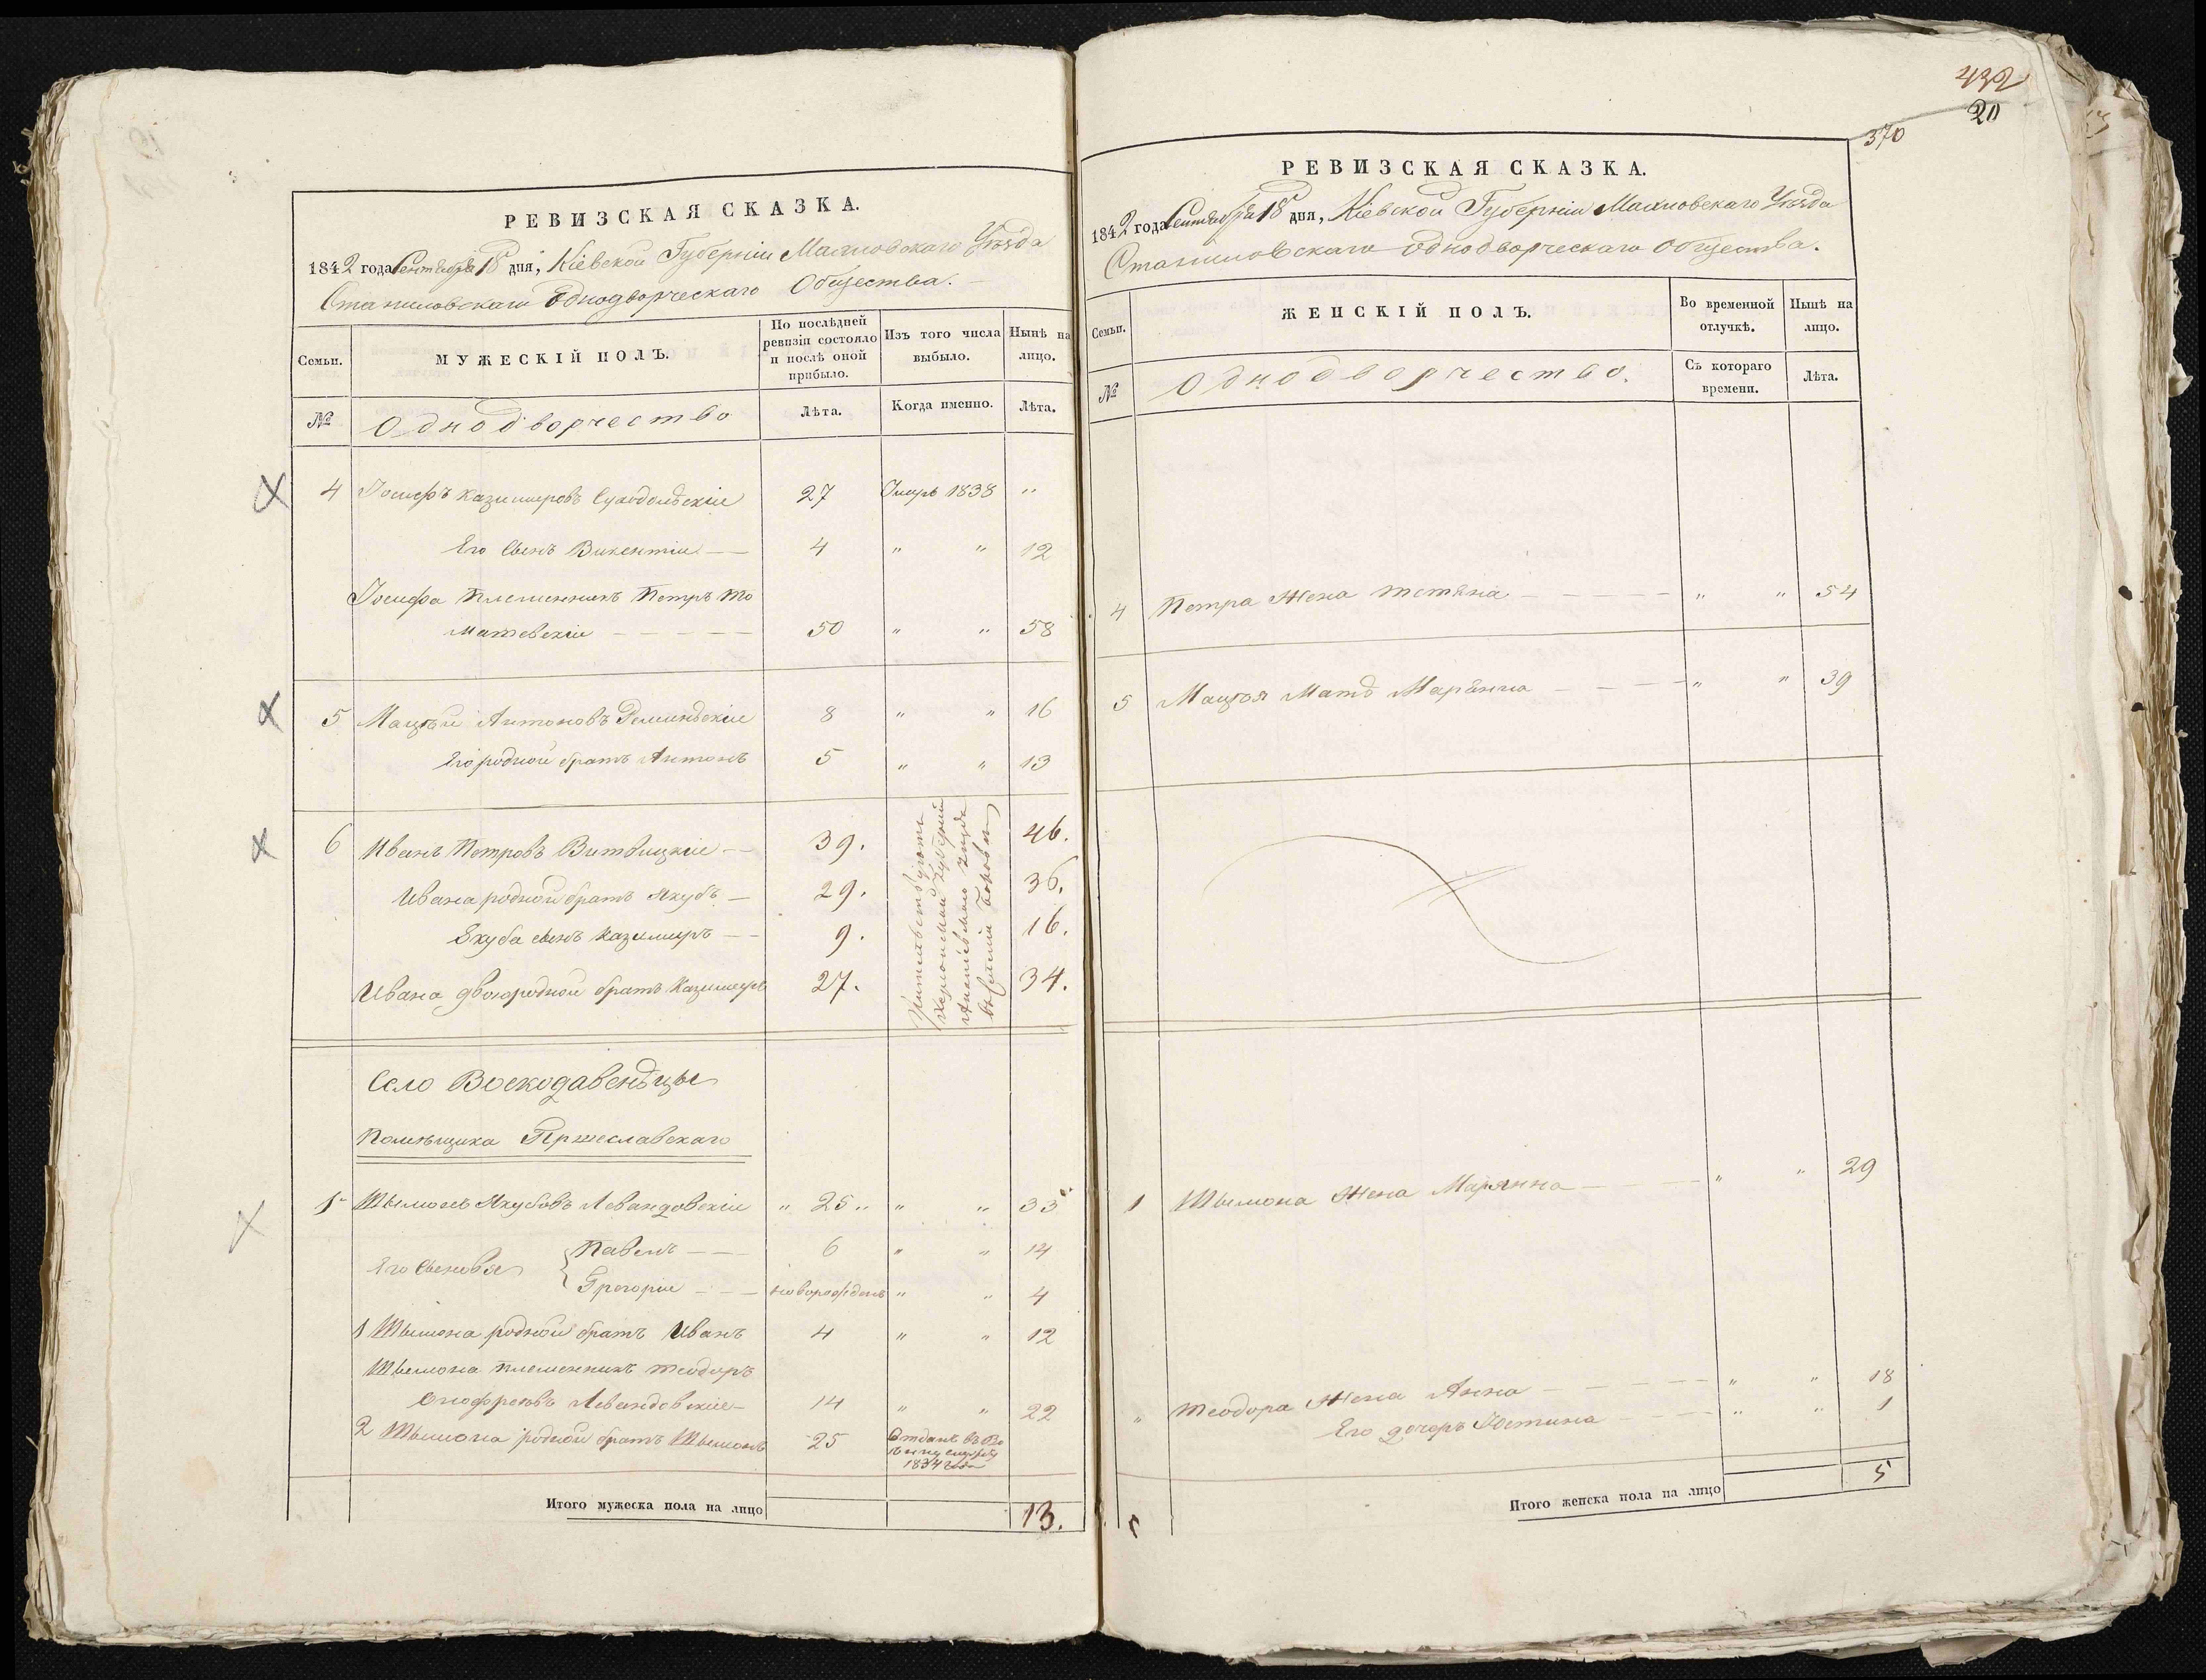 РЕВИЗСКАЯ СКАЗКА.
1842 года Сентября 18 дня, Кіевской Губерніи Махновскаго Уѣзда
Станиловскаго Однодворческаго Общества.
Семьи.
МУЖЕСКІЙ ПОЛЪ.
По послѣдней ревизіи состояло и послѣ оной прибыло.
Изъ того числа выбыло.
Нынѣ на лицо.
№
Однодворчество
Лѣта.
Когда именно.
Лѣта.
4 Іосифъ Казимировъ Суходольскіи 27 Умеръ 1838 "
Его Сынъ Викентіи 4 " " 12
Іосифа Племенникъ Петръ То
машевскіи 50 " " 58
5 Мацѣй Антоновъ 8 " " 16
Его родной братъ Антонъ 5 " " 13
6 Иванъ Петровъ Витвицкіи 39. 46.
Ивана родной братъ Якубъ 29. 36.
Якуба сынъ Казимиръ 9. 16.
Ивана двоюродной братъ Казимиръ 27. 34.
Жительствуютъ
Херсонской Губерніи
Ананіевскаго Уѣзда
въ селеніи
Село Воскодавенцы
Помѣщика Пржеславскаго
1 Шымонъ Якубовъ Левандовскіи " 25 " " " 33
Его Сыновья { Павелъ 6 " " 14
Грегоріи новорожденъ " " 4
1 Шымона родной братъ Иванъ 4 " " 12
Шымона племенникъ Теодоръ
Онофріевъ Левандовскіи 14 " " 22
2 Шымона родной братъ Шымонъ 25 Отданъ въ Во
енну службу
1834 года
Итого мужеска пола на лицо 13.
432
20
370
РЕВИЗСКАЯ СКАЗКА.
1842 года Сентября 18 дня, Кіевской Губерніи Махновскаго Уѣзда
Станиловскаго Однодворческаго Общества.
Семьи.
ЖЕНСКІЙ ПОЛЪ.
Во временной отлучкѣ.
Нынѣ на лицо.
№
Однодворчество.
Съ котораго времени.
Лѣта.
4 Петра Жена Тетяна " " 54
5 Мацѣя Мать Марянна " " 39
1 Шымона Жена Марянна " " 29
" Теодора Жена Анна " " 18
Его дочерь Юстина " " 1
Итого женска пола на лицо 5